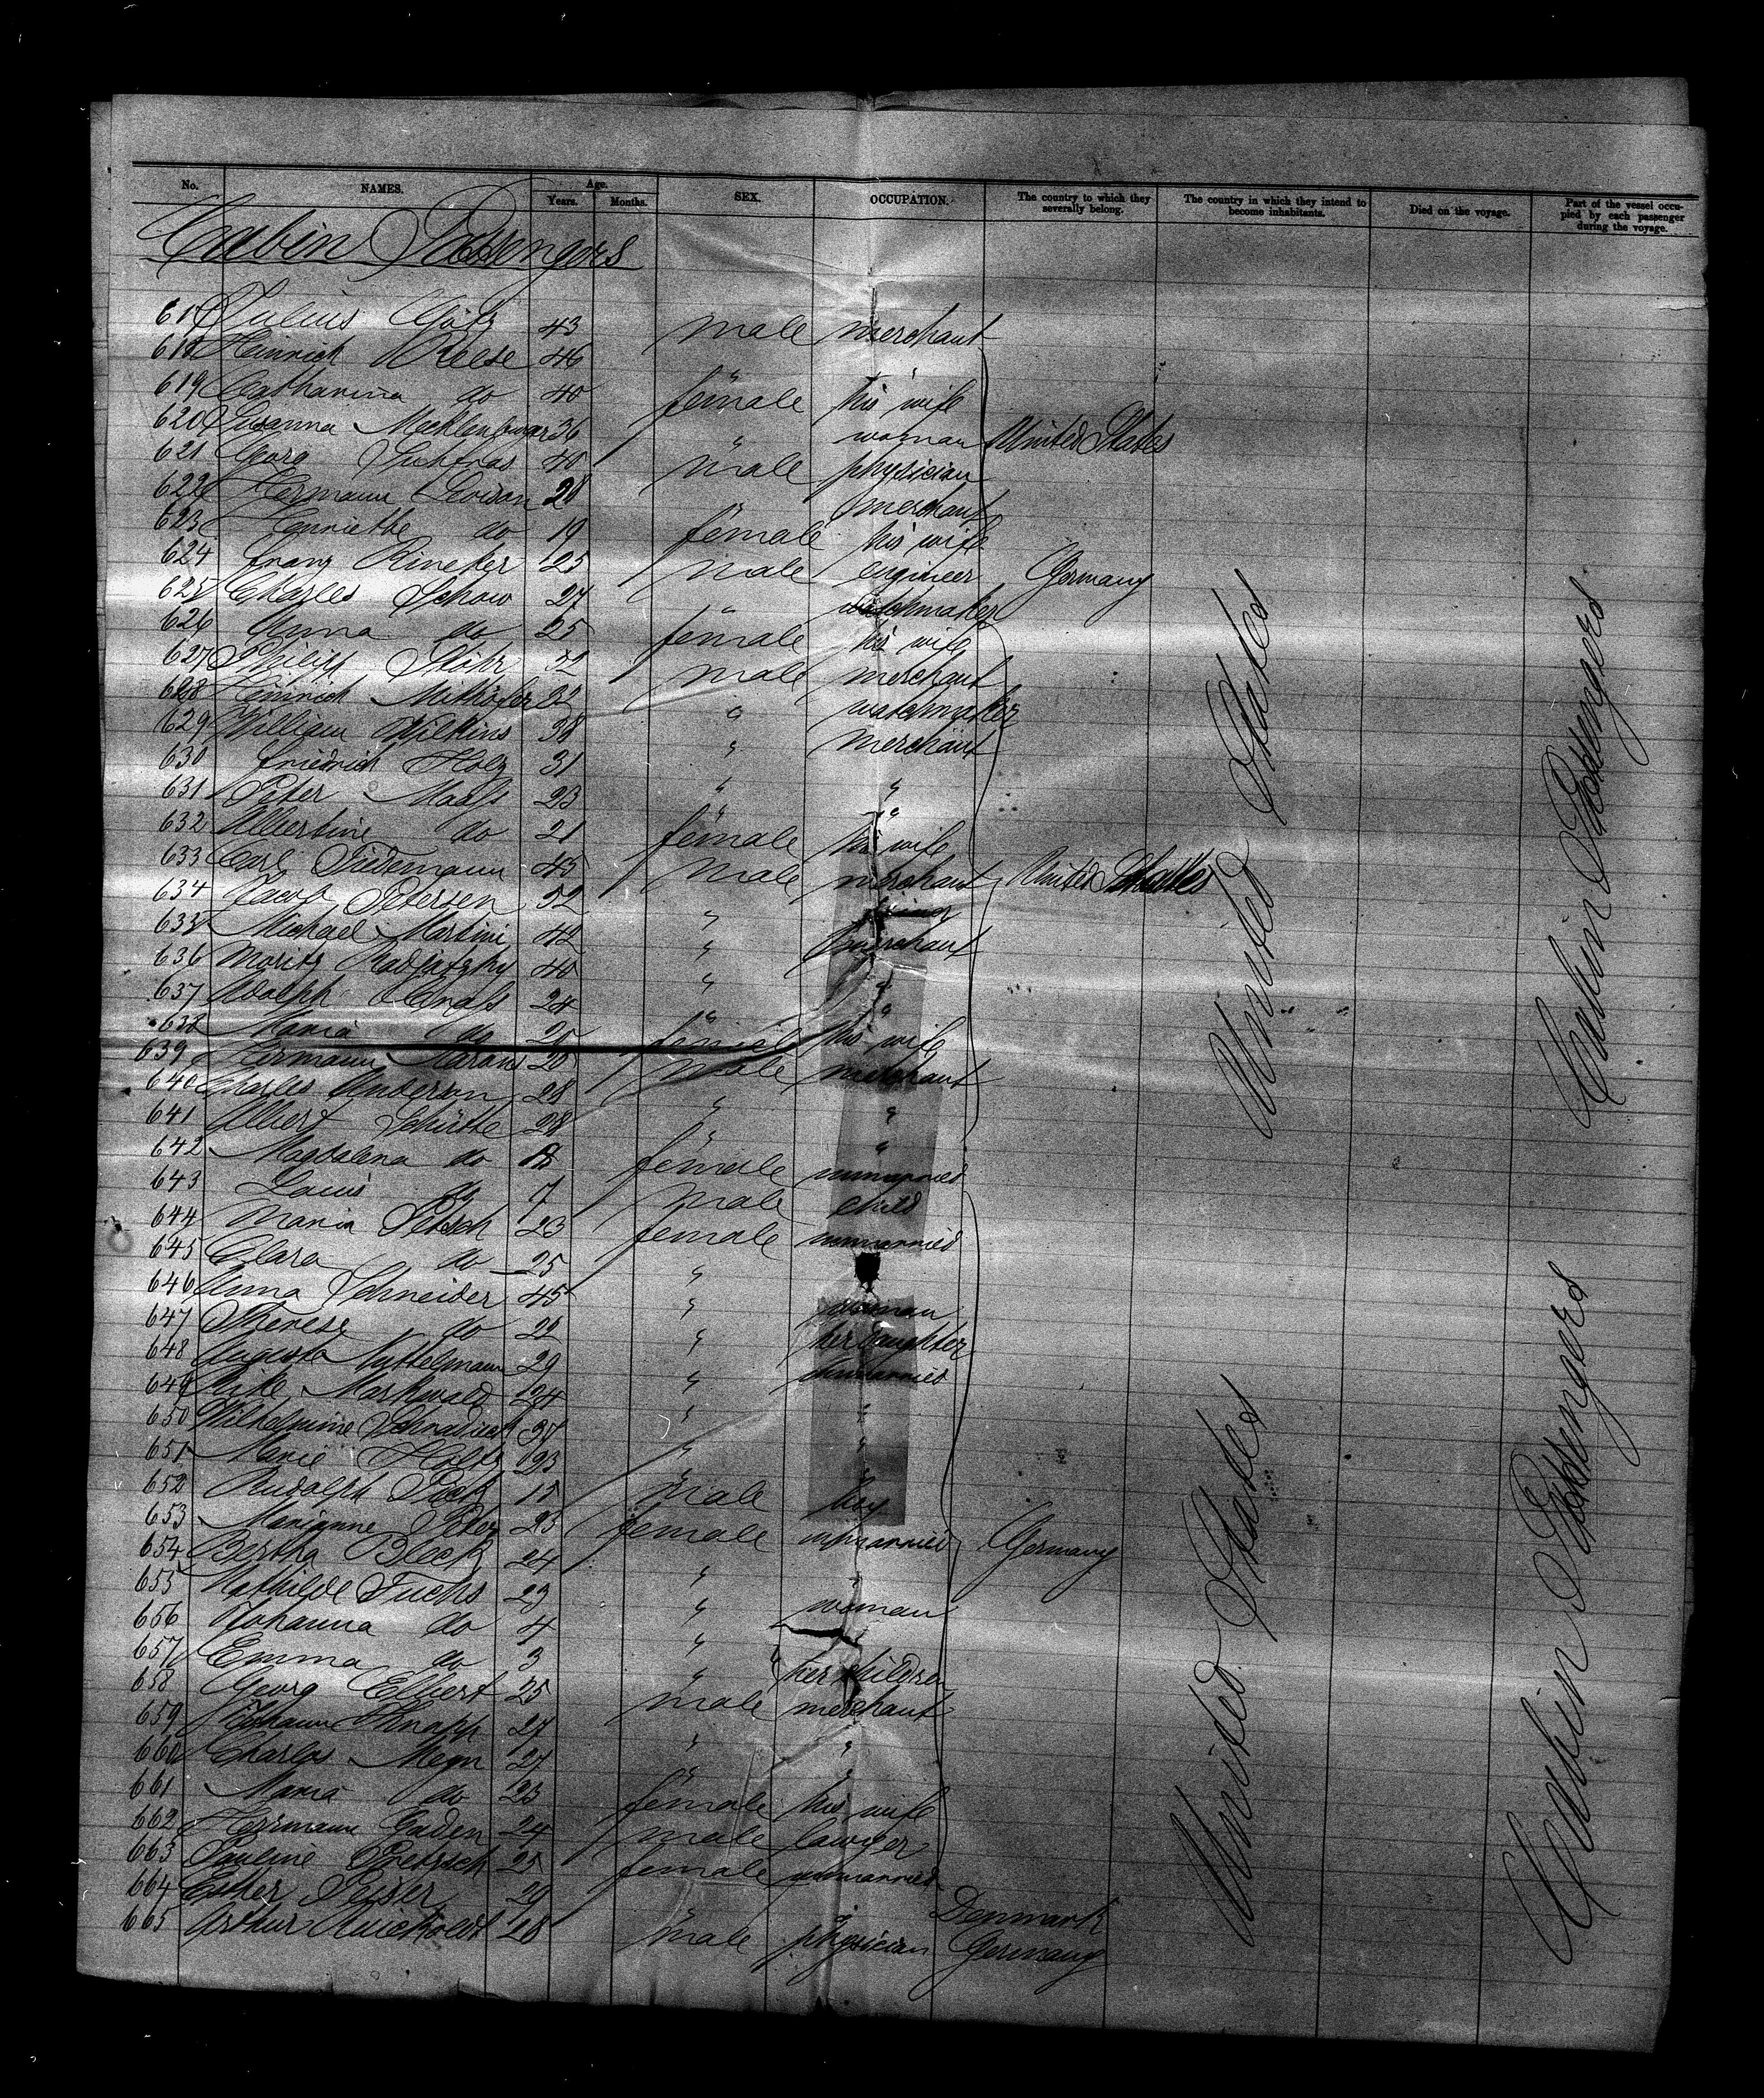 No. NAMES. Age. Years. Months. SEX. OCCUPATION. The country to which they severally belong. The country in which they intend to become inhabitants. Died on the voyage. Part of the vessel occupied by each passenger during the voyage.
Cabin Passengers
617 Julius Götz 43 male merchant
618 Heinrich Reese 46 " "
619 Catharina do 40 female his wife
620 Susanna 36 " woman United States
621 Georg 40 male physician
622 Hermann 28 " merchant
623 Henriette do 19 female his wife
624 Franz Rineker 25 male engineer Germany
625 Charles Schow 27 " watchmaker
626 Anna do 25 female his wife
627 Philipp Stöhr 32 male merchant
628 Heinrich 32 " watchmaker
629 William Wilkins 38 " merchant
630 Friedrich Holz 31 " "
631 Peter Maass 23 " "
632 Albertine do 21 female his wife
633 Carl Tiedemann 45 male merchant United States
634 Jacob Petersen 52 "
635 Michael Martini 42 " merchant
636 Moritz 40 " "
637 Adolph 24 " "
638 Maria do 25 female his wife
639 Hermann 20 male merchant
640 Charles Anderson 28 " "
641 Albert Schütte 28 " "
642 Magdalena do female unmarried
643 Louis do 7 male child
644 Maria Petsch 23 female unmarried
645 Clara do 25 "
646 Anna Schneider 45 " woman
647 Therese do 22 " her daughter
648 Augusta 29 " unmarried
649 Rike Markwald 24 " "
650 Wilhelmine " "
651 Marie Holtz " "
652 Rudolph male boy
653 Marianne Peter 23 female unmarried Germany
654 Bertha Bleck 24 " "
655 Mathilde Fuchs 29 " woman
656 Johanna do 4 "
657 Emma do 3 " her children
658 Georg Elbert 25 male merchant
659 Johann Knapp 27 " "
660 Charles Meyn 27 " "
661 Maria do 23 female his wife
662 Hermann Gaden 24 male lawyer
663 Pauline Pretzsch 25 female unmarried
664 Esther 29 " " Denmark
665 Arthur 28 male physician Germany
United States
United States
Cabin Passengers
Cabin Passengers